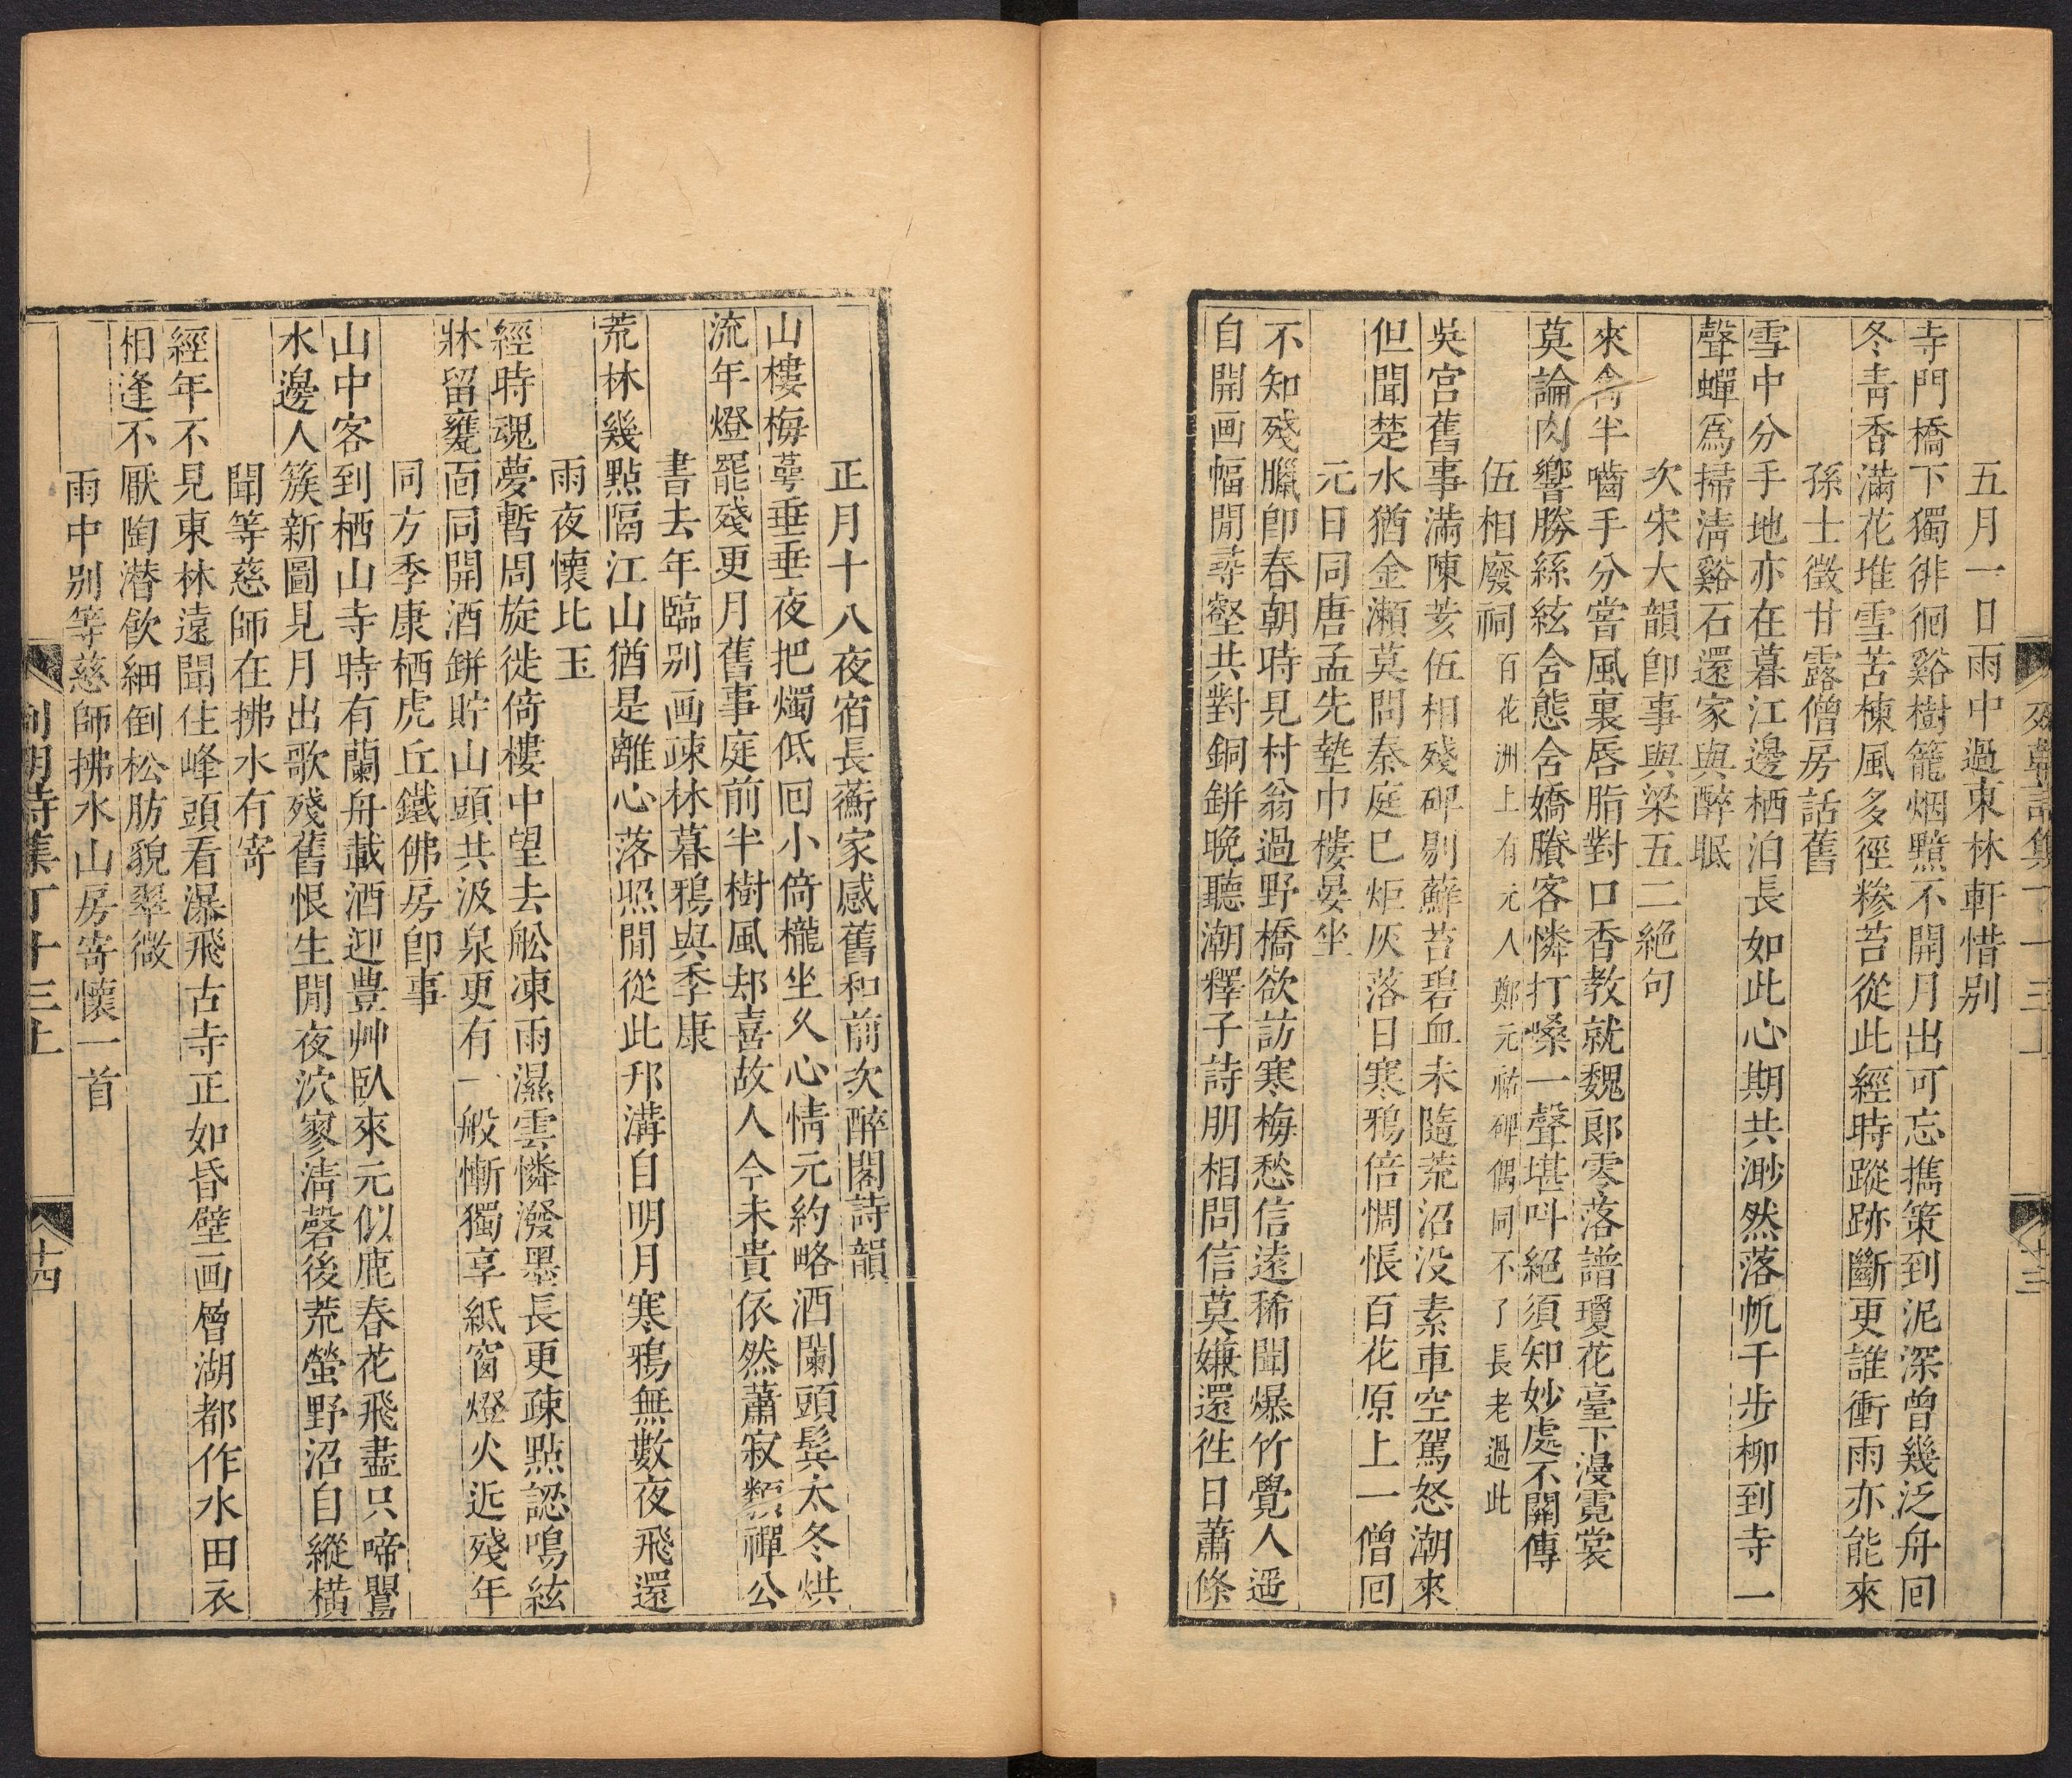 五月一日雨中過東林軒惜别
寺門橋下獨徘徊谿樹籠烟黯不開月出可忘攜策到泥深曾幾泛舟回
冬靑香滿花堆雪苦楝風多徑糝苔從此經時蹤跡斷更誰衝雨亦能來
孫士徵甘露僧房話舊
雪中分手地亦在暮江邊栖泊長如此心期共渺然落帆千步柳到寺一
聲蟬爲掃淸谿石還家與醉眠
次宋大韻卽事與梁五二絕句
來禽半嚙手分嘗風裏唇脂對口香教就魏郎零落譜瓊花臺下漫霓裳
莫論肉響勝絲絃含態含嬌賸客憐打嗓一聲堪叫絕須知妙處不關傳
伍相廢祠百花洲上有元人鄭元祐碑偶同不了長老過此
吳宫舊事滿陳荄伍相殘碑剔蘚苔碧血未隨荒沼没素車空駕怒潮來
但聞楚水猶金瀨莫問秦庭已炬灰落日寒鴉倍惆悵百花原上一僧回
元日同唐孟先墊巾樓晏坐
不知殘臘卽春朝時見村翁過野橋欲訪寒梅愁信遠稀聞爆竹覺人遥
自開画幅閒尋壑共對銅鉼晚聽潮釋子詩朋相問信莫嫌還徃日蕭條
列朝詩集丁十三上
十三
正月十八夜宿長蘅家感舊和前次醉閣詩韻
山樓梅萼垂垂夜把燭低回小倚櫳坐久心情元約略酒闌頭鬓太冬烘
流年燈罷殘更月舊事庭前半樹風却喜故人今未貴依然蕭寂類禪公
書去年臨别画疎林暮鴉與季康
荒林幾點隔江山猶是離心落照閒從此邗溝自明月寒鴉無數夜飛還
雨夜懷比玉
經時魂夢暫周旋徙倚樓中望去舩凍雨濕雲憐潑墨長更疎點認鳴絃
牀留甕面同開酒鉼貯山頭共汲泉更有一般慚獨享紙窗燈火近殘年
同方季康栖虎丘鐵佛房卽事
山中客到栖山寺時有蘭舟載酒迎豊艸臥來元似鹿春花飛盡只啼鸎
水邊人簇新圖見月出歌殘舊恨生閒夜泬寥淸磬後荒螢野沼自縱橫
聞等慈師在拂水有寄
經年不見東林遠聞住峰頭看瀑飛古寺正如昏壁画層湖都作水田衣
相逢不厭陶潛飮細倒松肪貌翠微
雨中别等慈師拂水山房寄懷一首
列朝詩集丁十三上
十四